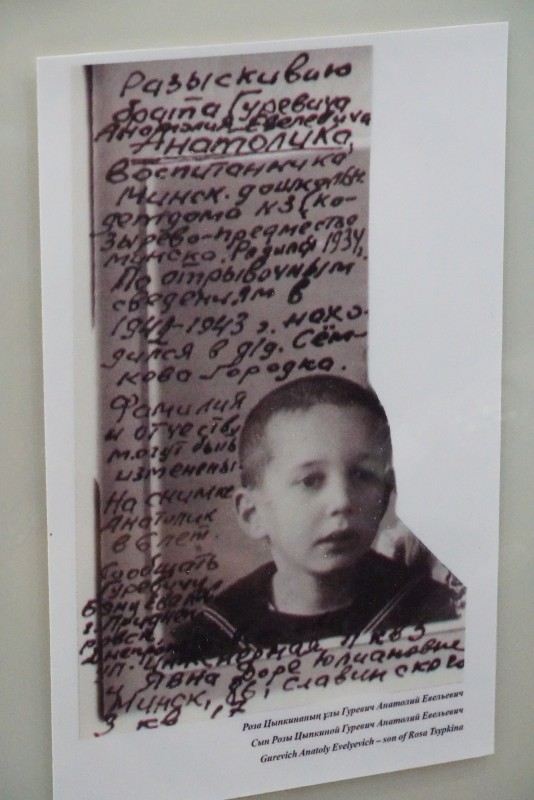 Разыскиваю
брата Гуревича
Анатолия Евелевича
Анатолика,
воспитанника
Минск. дошкольн.
детдома №3 (ко-
зырево-предместье
Минска. Родился 1934,
По отрывочным
сведениям в
1942-1943 г. нахо-
дился в д/д. Сём-
кова Городка.
Фамилия
и отчество
могут быть
изменены.
На снимке
Анатолик
в 6 лет.
Сообщать
Гуревичу
г.
ул. Инженерная 11 кв 3
Минск,
3 кв 17
Роза Цыпкинаның ұлы Гуревич Анатолий Евельевич
Сын Розы Цыпкиной Гуревич Анатолий Евельевич
Gurevich Anatoly Evelyevich – son of Rosa Tsypkina